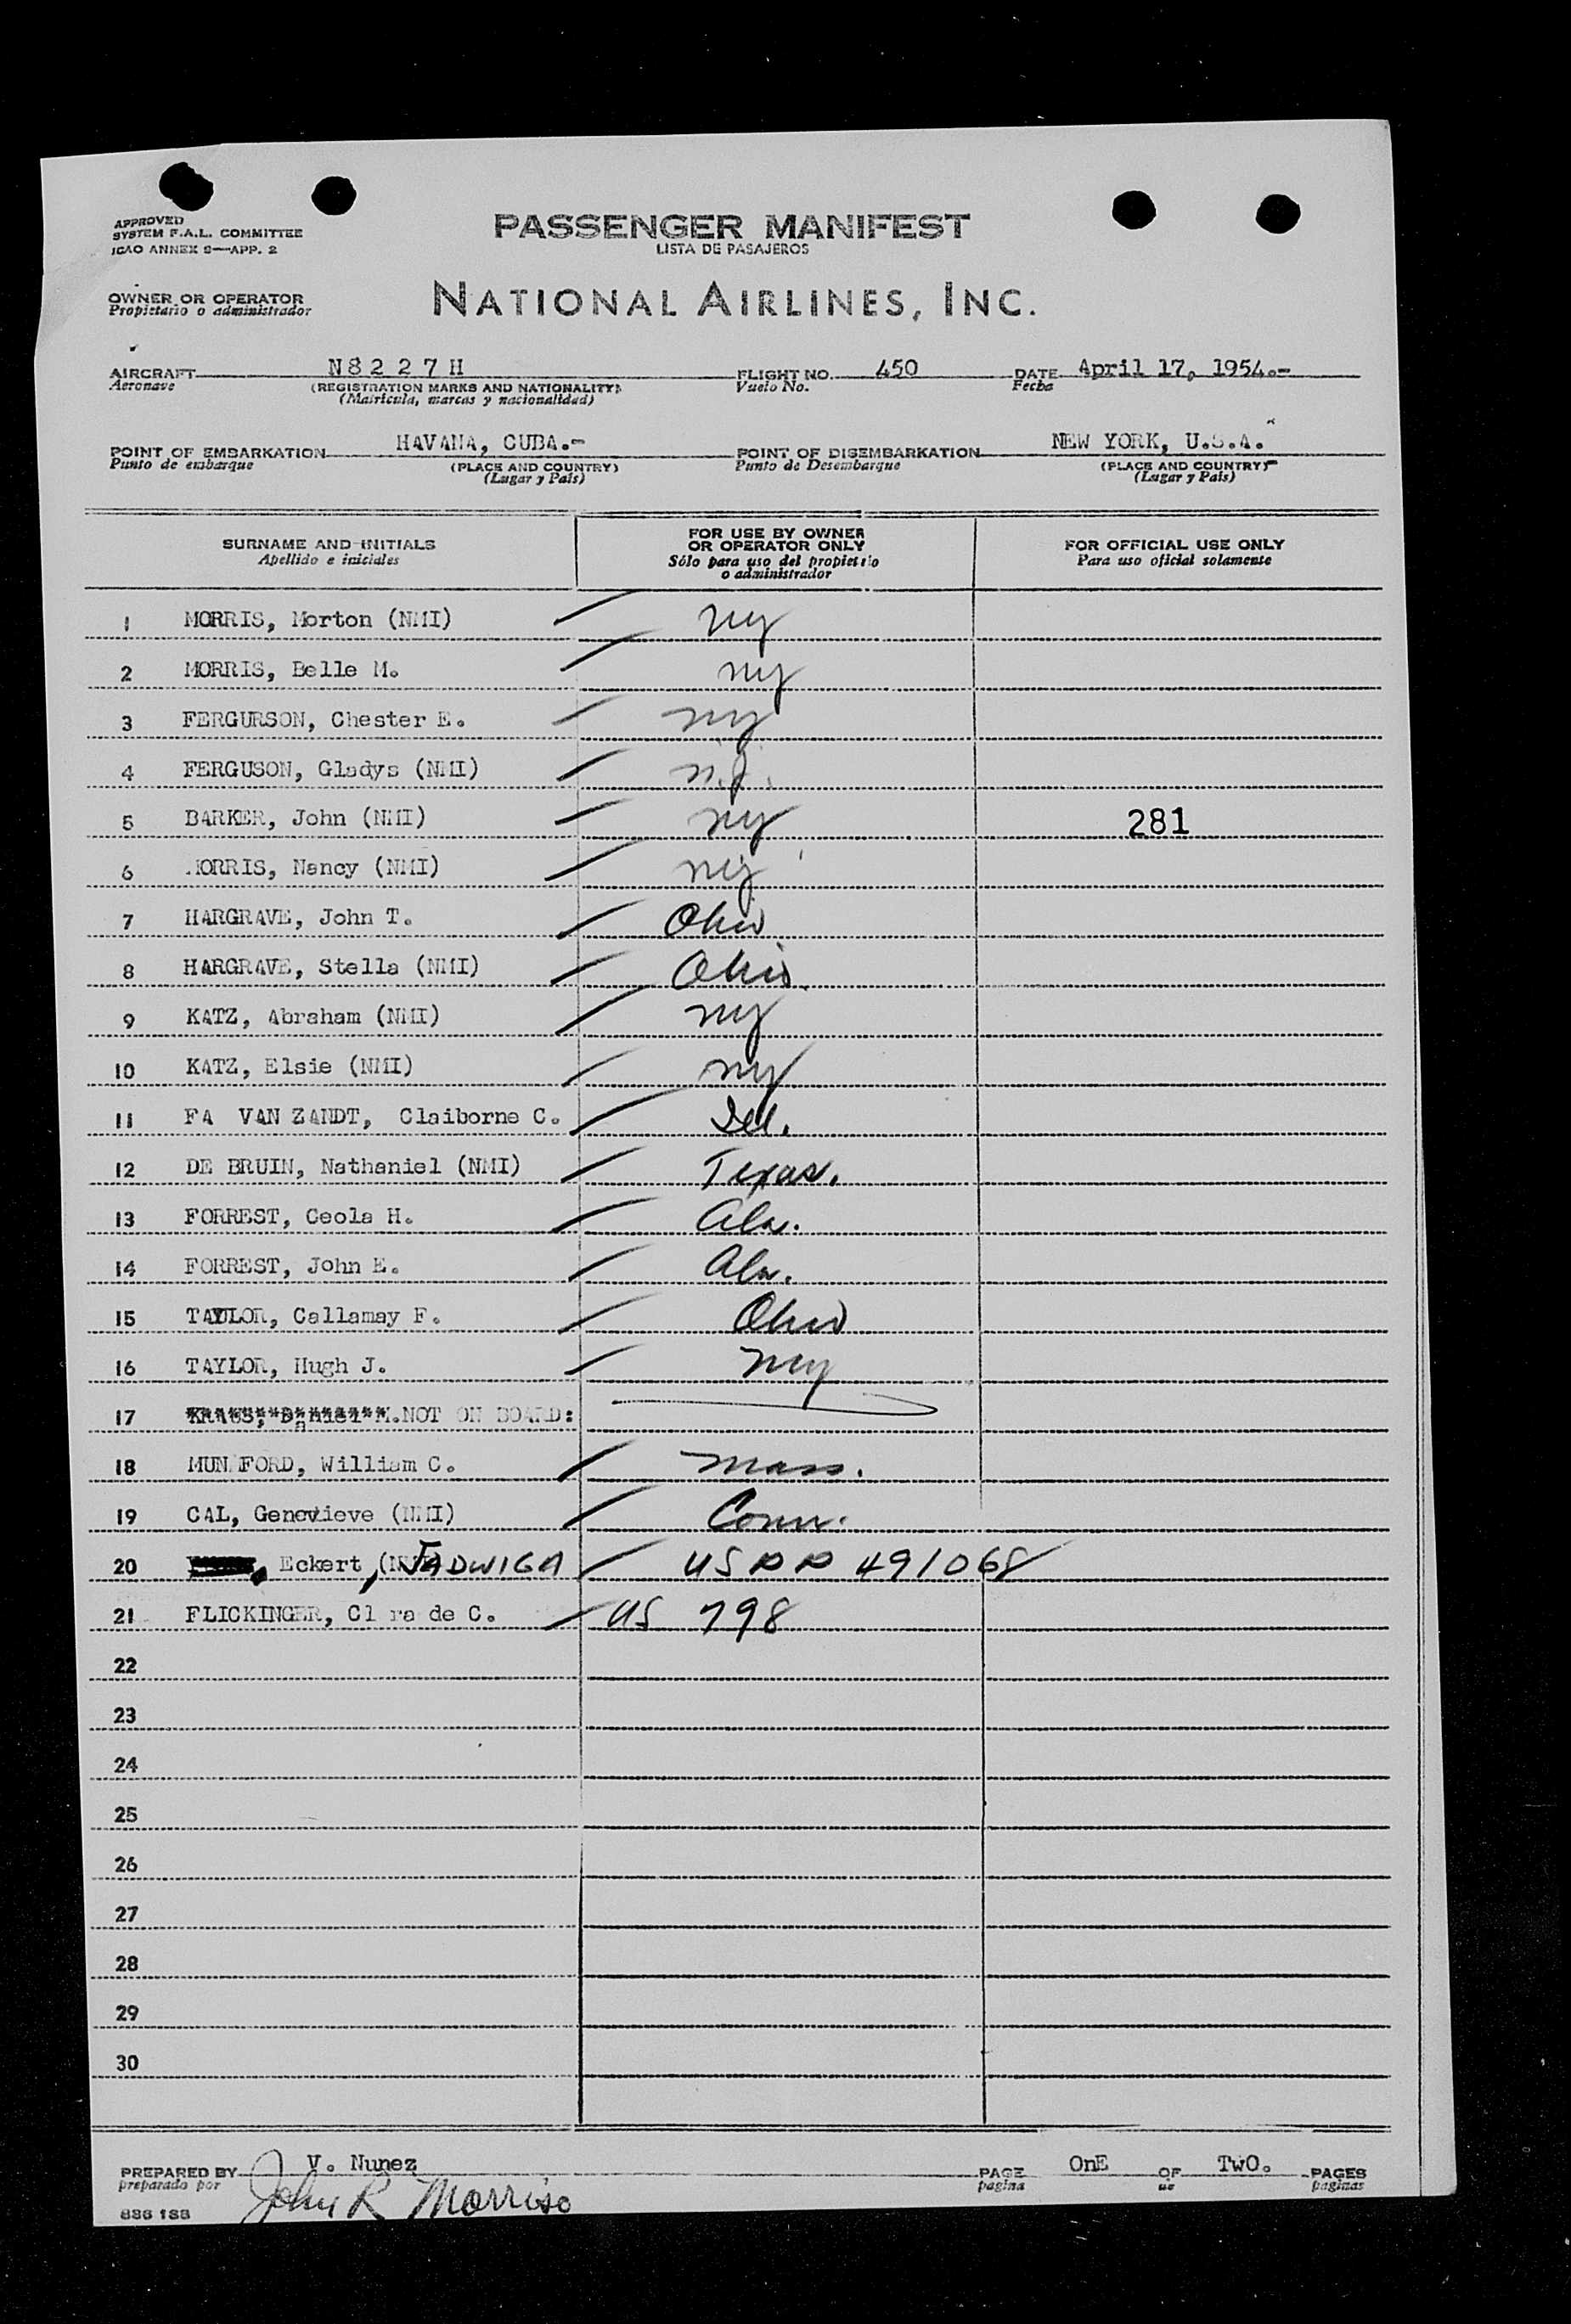 APPROVED
SYSTEM F.A.L. COMMITTEE
ICAO ANNEX 9—APP. 2
PASSENGER MANIFEST
LISTA DE PASAJEROS
OWNER OR OPERATOR
Propietario o administrador
NATIONAL AIRLINES, INC.
AIRCRAFT N8227H FLIGHT NO. 450 DATE April 17, 1954.-
Aeronave (REGISTRATION MARKS AND NATIONALITY) Vuelo No. Fecha
(Matricula, marcas y nacionalidad)
POINT OF EMBARKATION HAVANA, CUBA.- POINT OF DISEMBARKATION NEW YORK, U.S.A.
Punto de embarque (PLACE AND COUNTRY) Punto de Desembarque (PLACE AND COUNTRY)
(Lugar y País) (Lugar y País)
SURNAME AND INITIALS
Apellido e iniciales
FOR USE BY OWNER
OR OPERATOR ONLY
Sólo para uso del propietario
o administrador
FOR OFFICIAL USE ONLY
Para uso oficial solamente
1 MORRIS, Morton (NMI) ny
2 MORRIS, Belle M. ny
3 FERGURSON, Chester E. ny
4 FERGUSON, Gladys (NMI) n.j.
5 BARKER, John (NMI) ny 281
6 MORRIS, Nancy (NMI) ny
7 HARGRAVE, John T. Ohio
8 HARGRAVE, Stella (NMI) Ohio
9 KATZ, Abraham (NMI) ny
10 KATZ, Elsie (NMI) ny
11 FA VAN ZANDT, Claiborne C.
12 DE BRUIN, Nathaniel (NMI) Texas.
13 FORREST, Ceola H. Ala.
14 FORREST, John E. Ala.
15 TAYLOR, Callamay F. Ohio
16 TAYLOR, Hugh J. ny
17 KRAUS, Daniel M. NOT ON BOARD:
18 MUN FORD, William C. Mass.
19 CAL, Genevieve (NMI) Conn.
20 Eckert, JADWIGA US PP 491068
21 FLICKINGER, Clara de C. US 798
22
23
24
25
26
27
28
29
30
PREPARED BY V. Nunez PAGE OnE OF TwO. PAGES
preparado por John R Morriso pagina de paginas